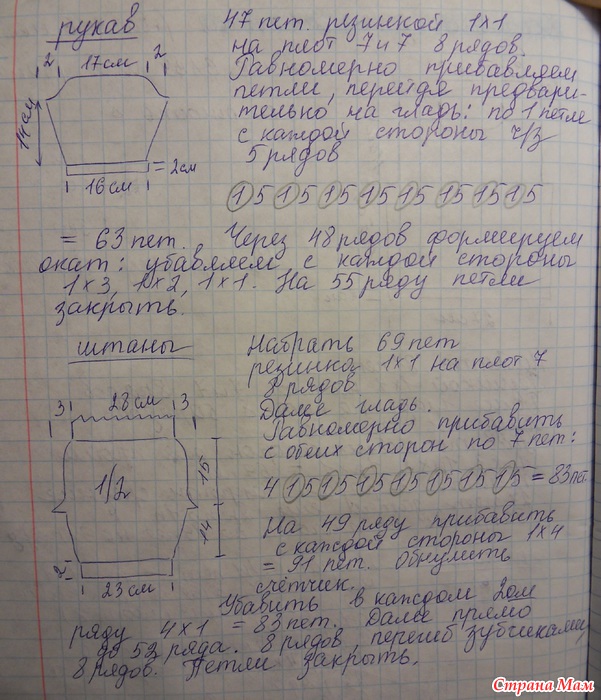 рукав
47 пет. резинкой 1х1
на плот 7 и 7 8 рядов.
Равномерно прибавляем
петли, перейдя предвари-
тельно на гладь: по 1 петле
с каждой стороны ч/з
5 рядов
2 17см 2
14см
= 2см
16см
1 5 1 5 1 5 1 5 1 5 1 5 1 5 1 5
= 63 пет. Через 48 рядов формируем
окат: убавляем с каждой стороны
1х3, 1х2, 1х1. На 55 ряду петли
закрыть.
штаны
Набрать 69 пет
резинка 1х1 на плот 7
8 рядов
Далее гладь.
Равномерно прибавить
с обеих сторон по 7 пет:
3 28см 3
1/2
15
14
2
23см
4 1 5 1 5 1 5 1 5 1 5 1 5 1 5 = 83 пет
На 49 ряду прибавить
с каждой стороны 1х4
= 91 пет. Обнулить
счётчик.
Убавить в каждом 2ом
ряду 4х1 = 83 пет. Далее прямо
до 52 ряда. 8 рядов, перегиб зубчиками,
8 рядов. Петли закрыть.
Страна Мам